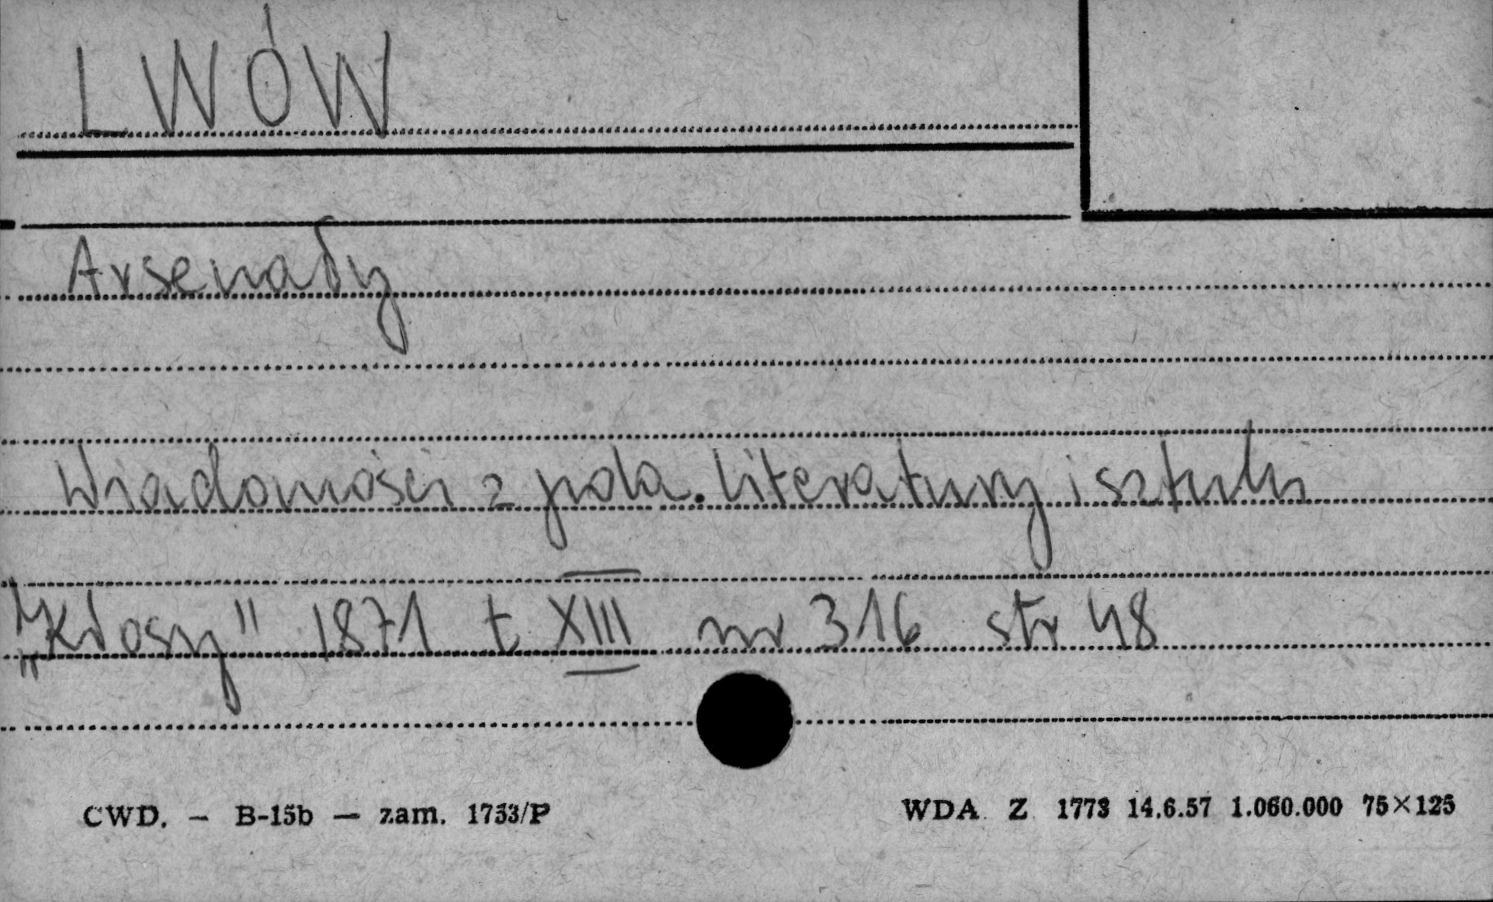 LWÓW
Arsenały
Wiadomości z pola. literatury i sztuki
"Kłosy" 1871 t XIII nr 316 str 48
CWD. — B-15b — zam. 1733/P
WDA Z 1773 14.6.57 1.060.000 75×125